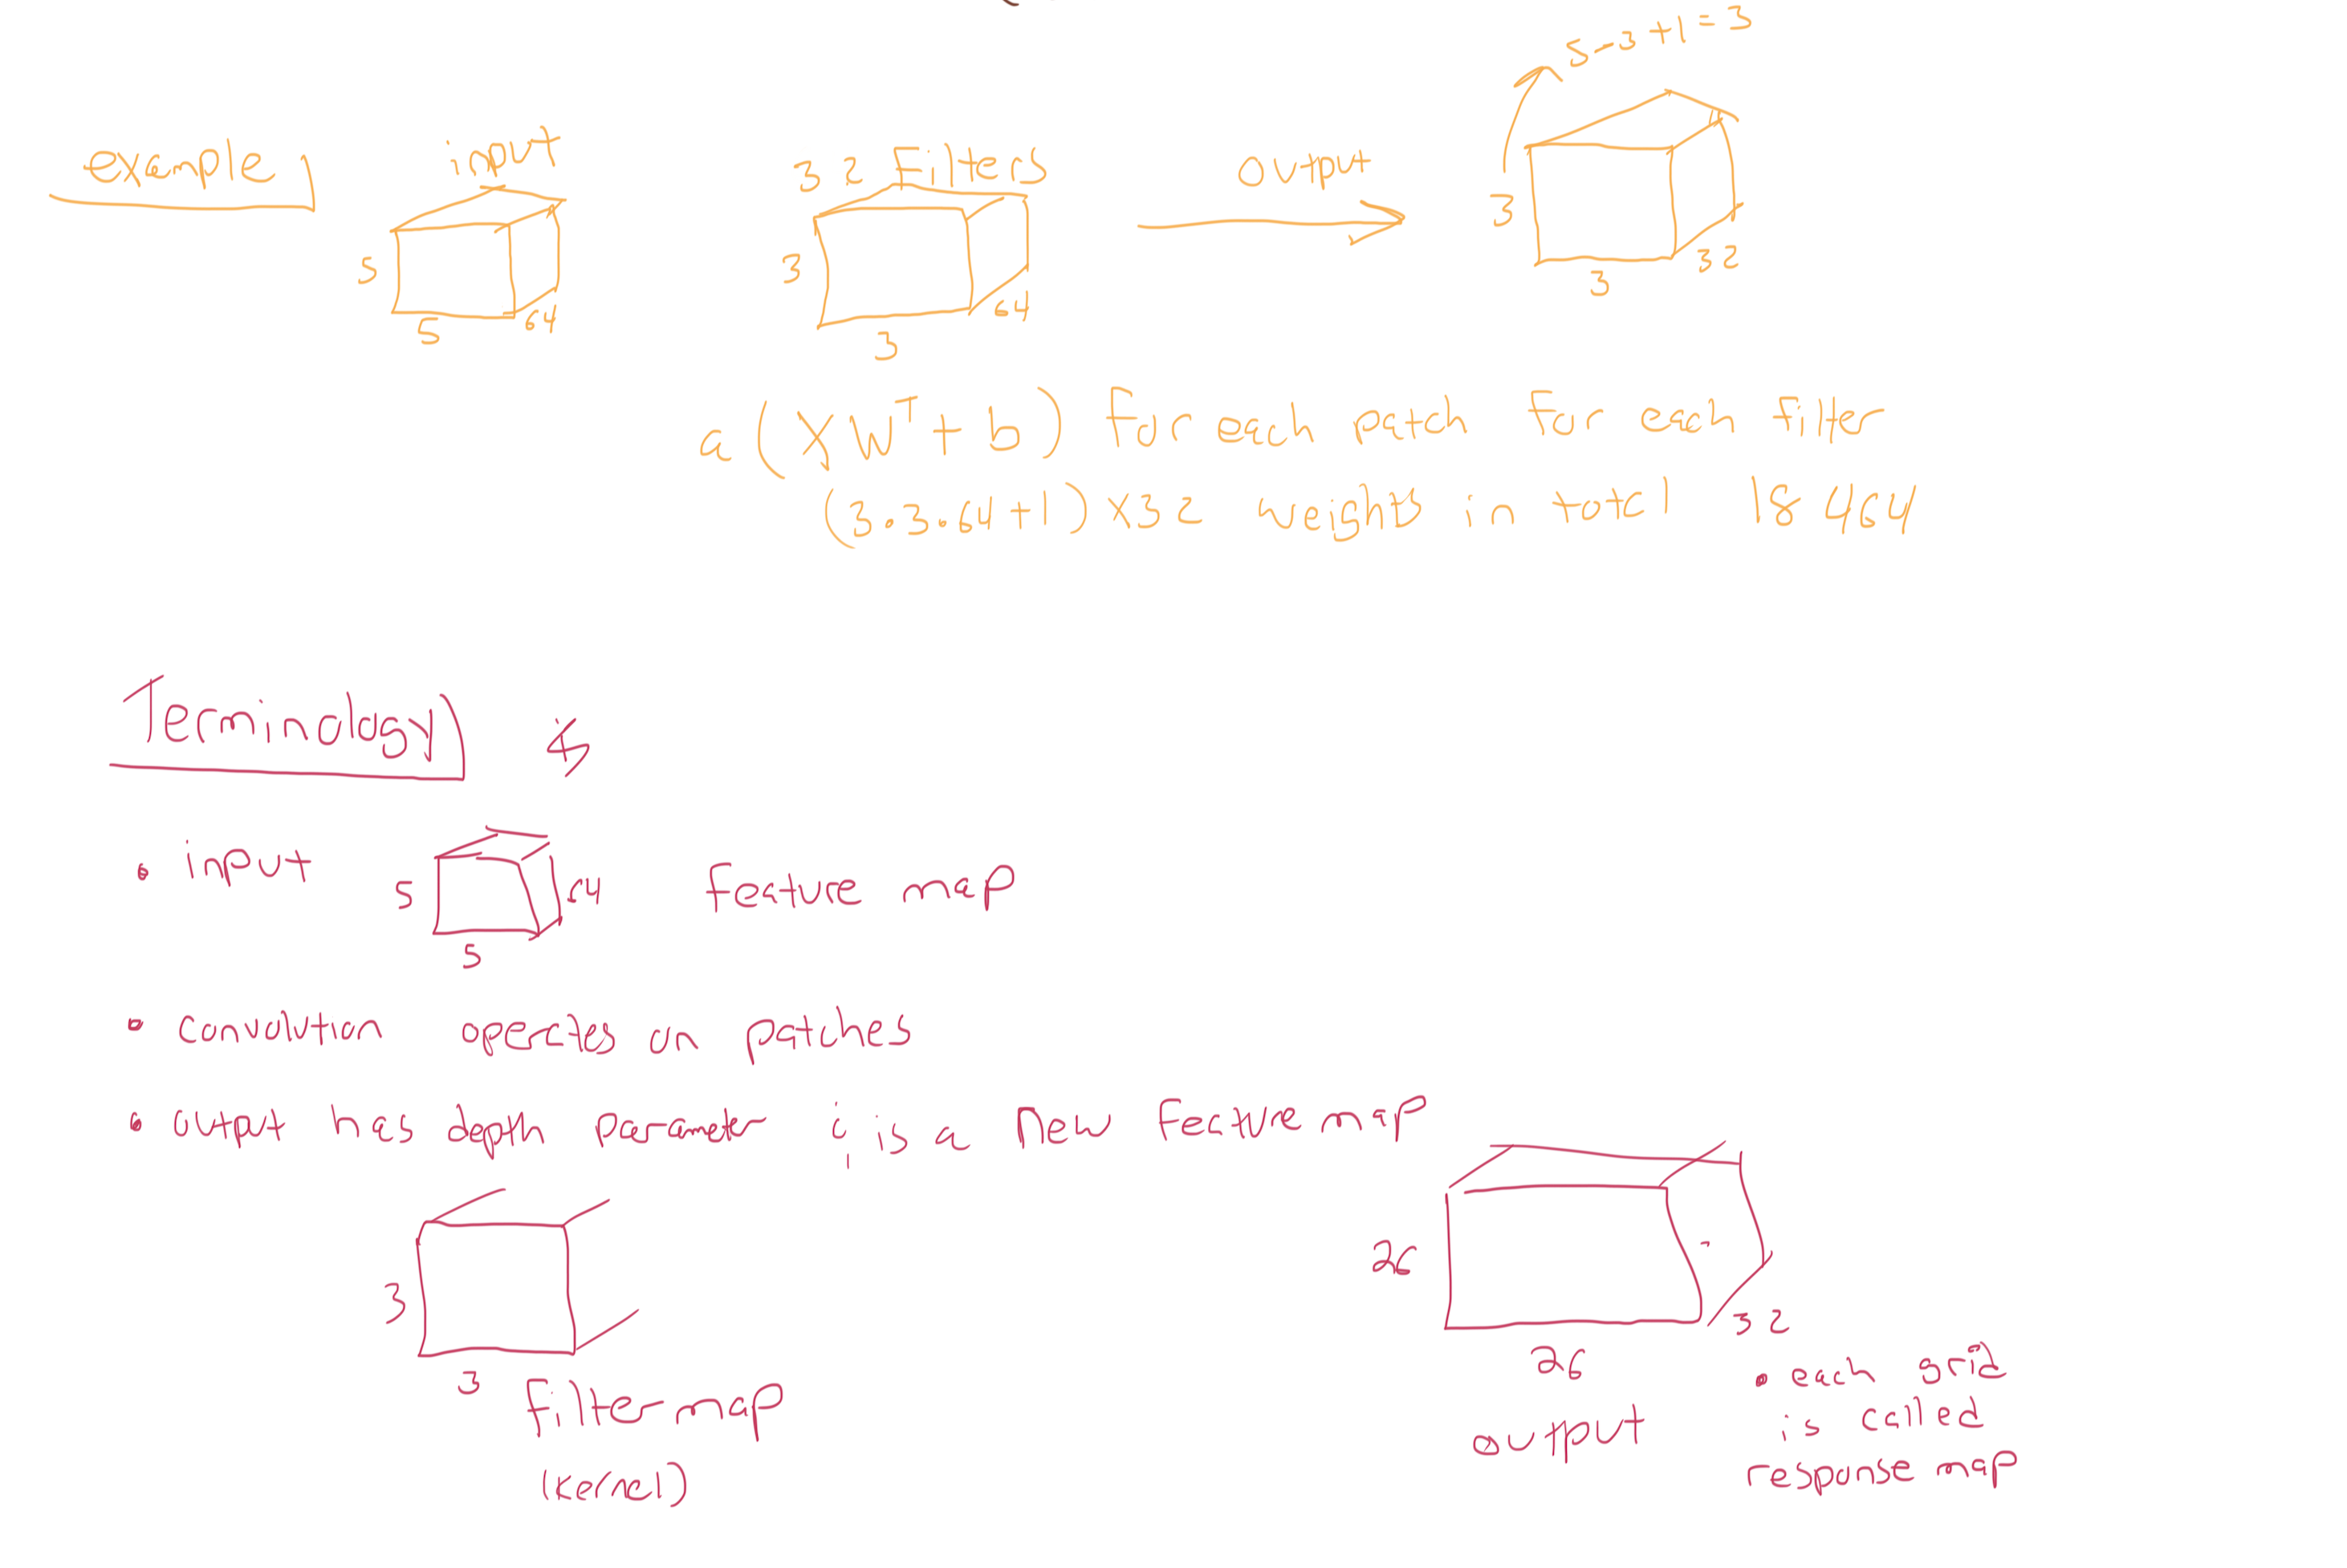 5-3+1=3
example
input
32 Filters
output
5
5
64
3
3
64
3
3
32
a(XWᵀ+b) for each patch for each filter
(3.3.64+1)x32 weights in total 18464
Terminology
input
5
5
64
feature map
convolution operates on patches
output has depth parameter & is a new feature map
3
3
filter map
(kernel)
26
26
32
output
each grid
is called
response map